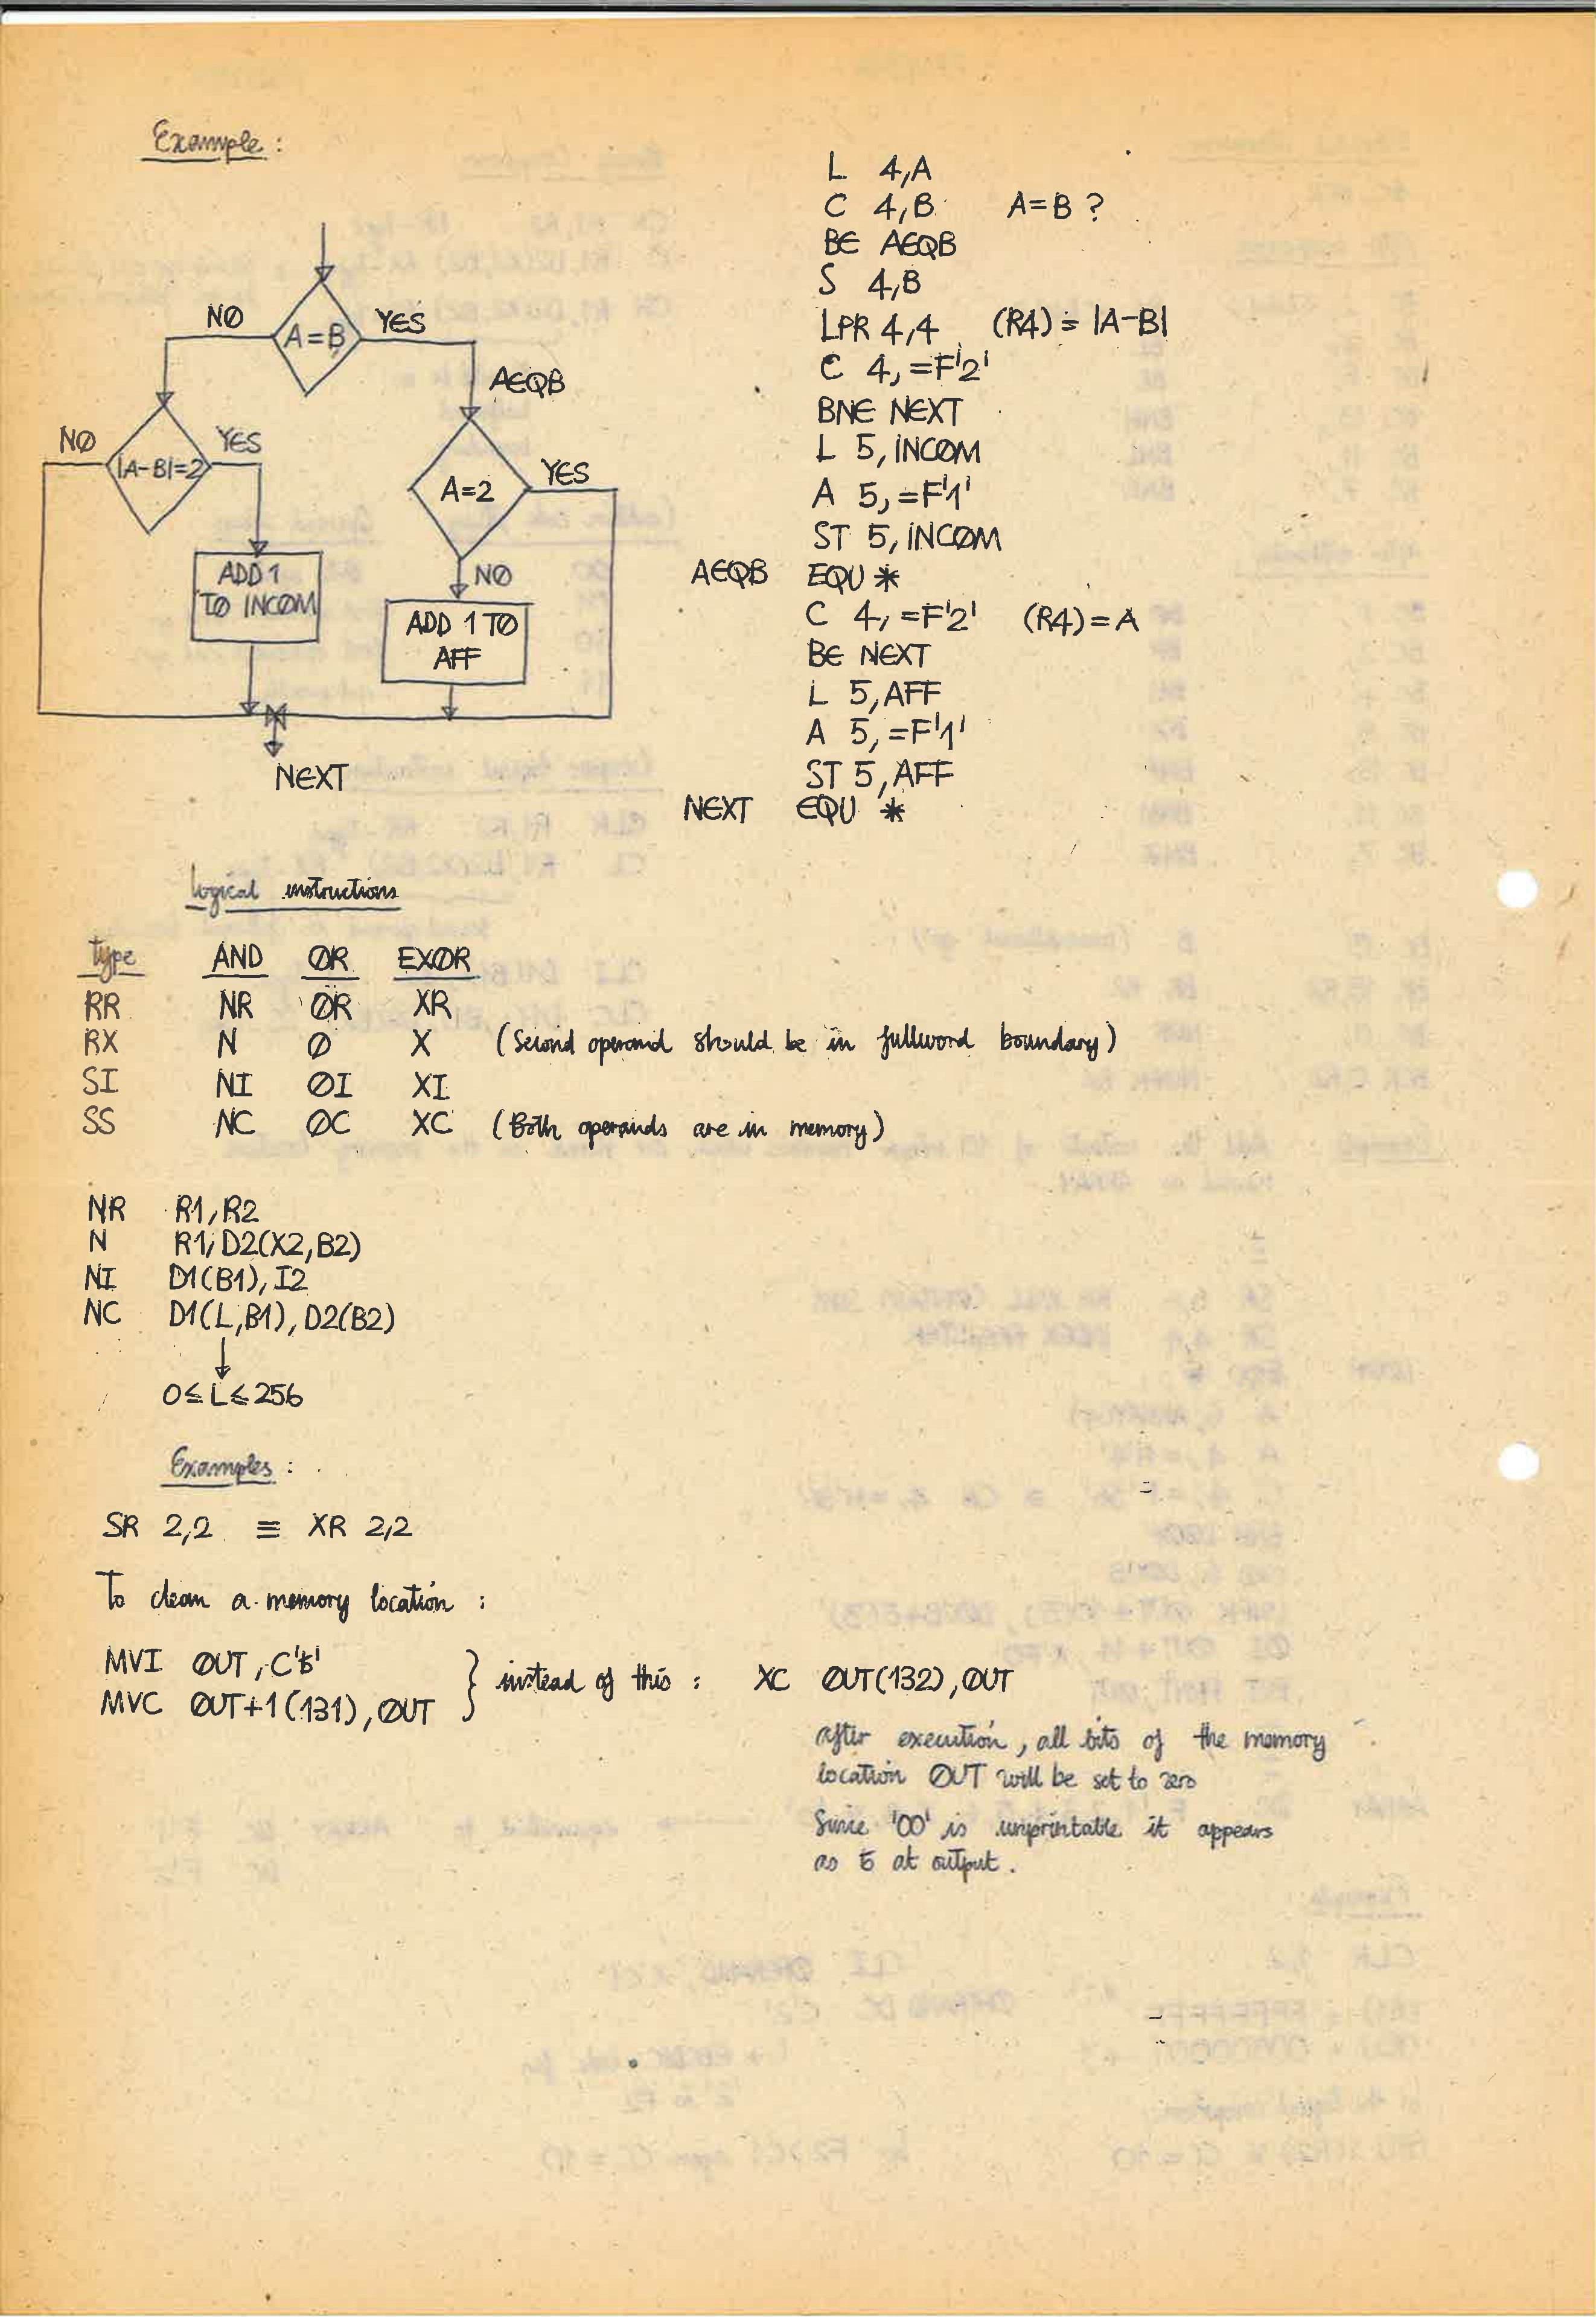 Example :
A=B
NØ
YES
AEQB
|A-B|=2
NØ
YES
A=2
YES
NØ
ADD 1
TØ INCØM
ADD 1 TØ
AFF
NEXT
L 4,A
C 4,B A=B ?
BE AEQB
S 4,B
LPR 4,4 (R4) = |A-B|
C 4,=F'2'
BNE NEXT
L 5,INCØM
A 5,=F'1'
ST 5,INCØM
AEQB EQU *
C 4,=F'2' (R4)=A
BE NEXT
L 5,AFF
A 5,=F'1'
ST 5,AFF
NEXT EQU *
Logical instructions
type AND ØR EXØR
RR NR ØR XR
RX N Ø X (Second operand should be in fullword boundary)
SI NI ØI XI
SS NC ØC XC (Both operands are in memory)
NR R1,R2
N R1,D2(X2,B2)
NI D1(B1),I2
NC D1(L,B1),D2(B2)
0≤L≤256
Examples :
SR 2,2 ≡ XR 2,2
To clean a memory location :
MVI ØUT,C'ƀ'
MVC ØUT+1(131),ØUT } instead of this : XC ØUT(132),ØUT
after execution, all bits of the memory
location ØUT will be set to zero
Since '00' is unprintable it appears
as ƀ at output.